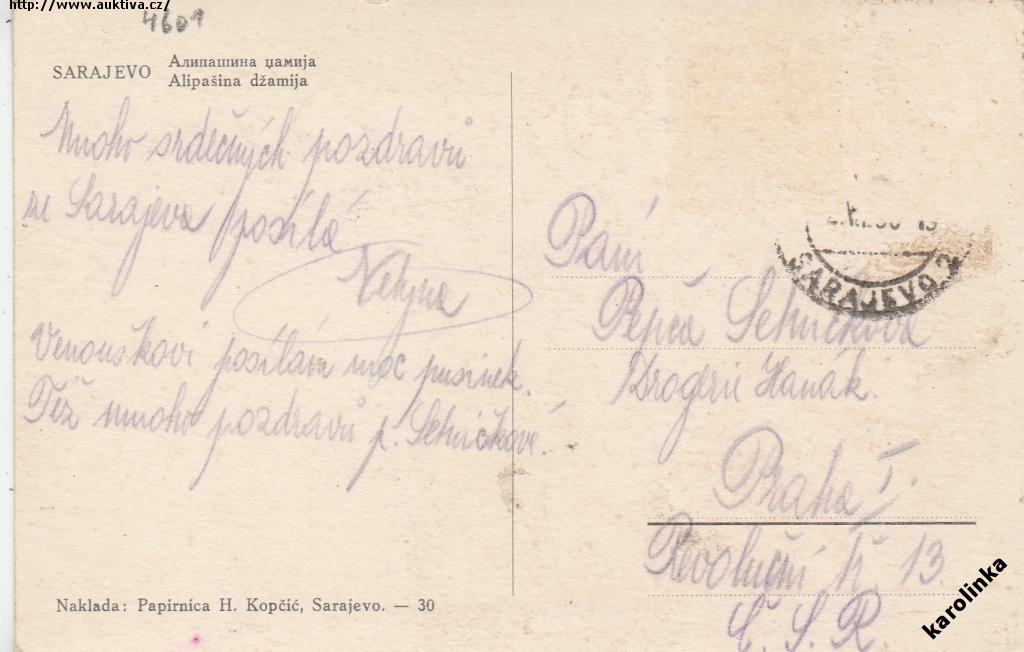 http://www.auktiva.cz/
4601
SARAJEVO
Алипашина џамија
Alipašina džamija
Mnoho srdečných pozdravů
ze Sarajeva posílá
Venouškovi posílám moc pusinek.
Též mnoho pozdravů p. Sehničkové.
Paní
Pepča Sehničková
Drogerie Hanák.
Praha I.
Revoluční tř. 13.
Č. S. R.
SARAJEVO 2
Naklada: Papirnica H. Kopčić, Sarajevo. — 30
karolinka